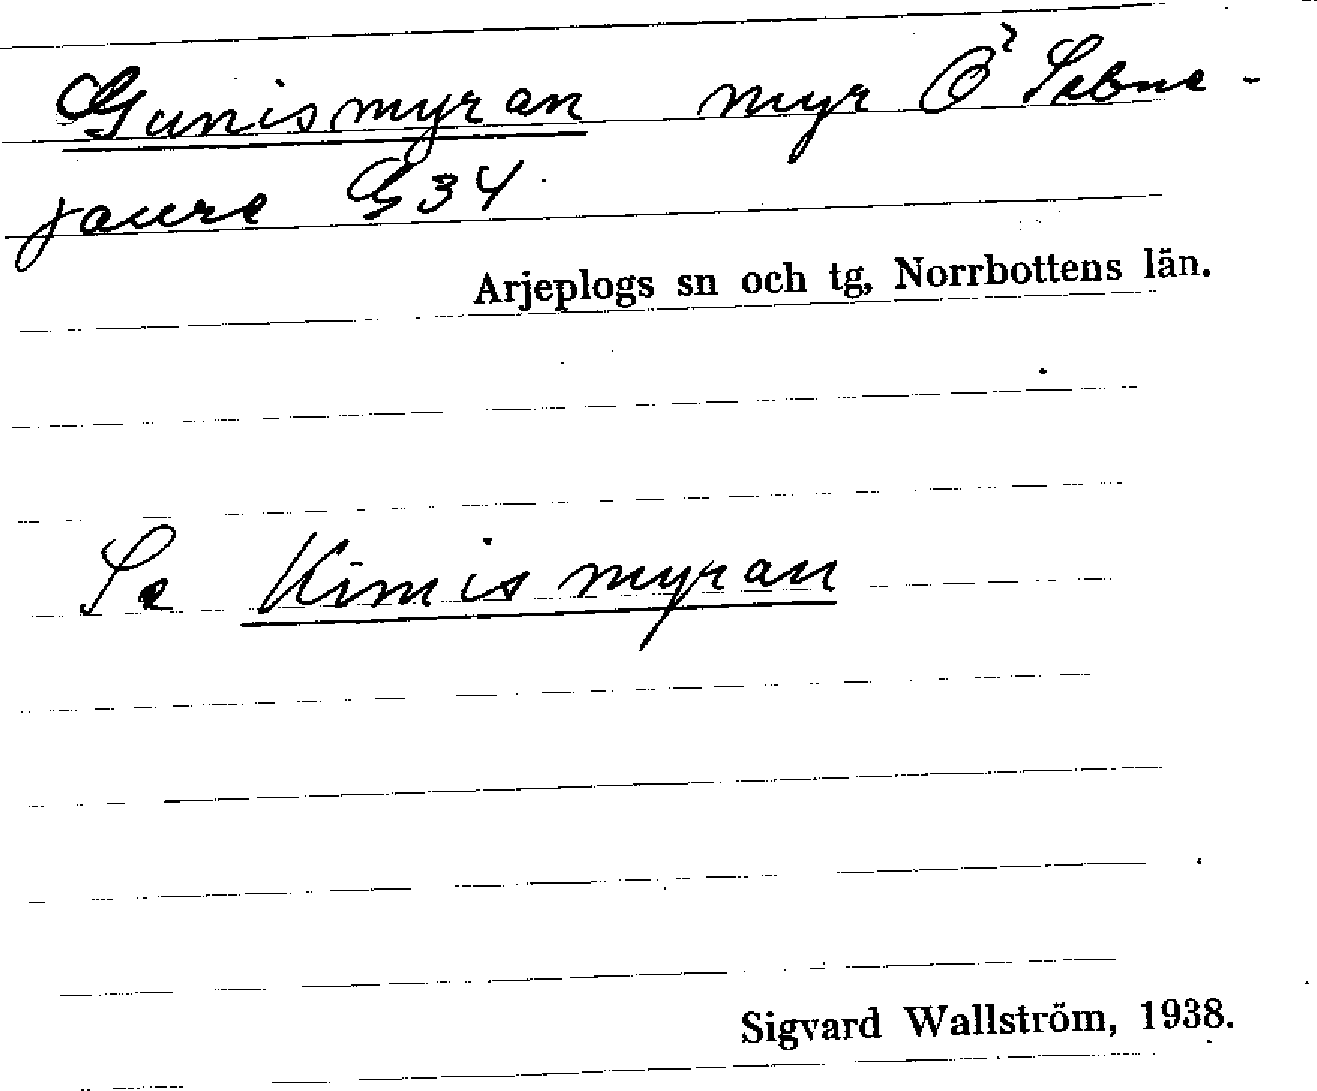 Gunismyran myr Ö² Sebne-
jaure G34
Arjeplogs sn och tg, Norrbottens län.
Se Kimismyran
Sigvard Wallström, 1938.